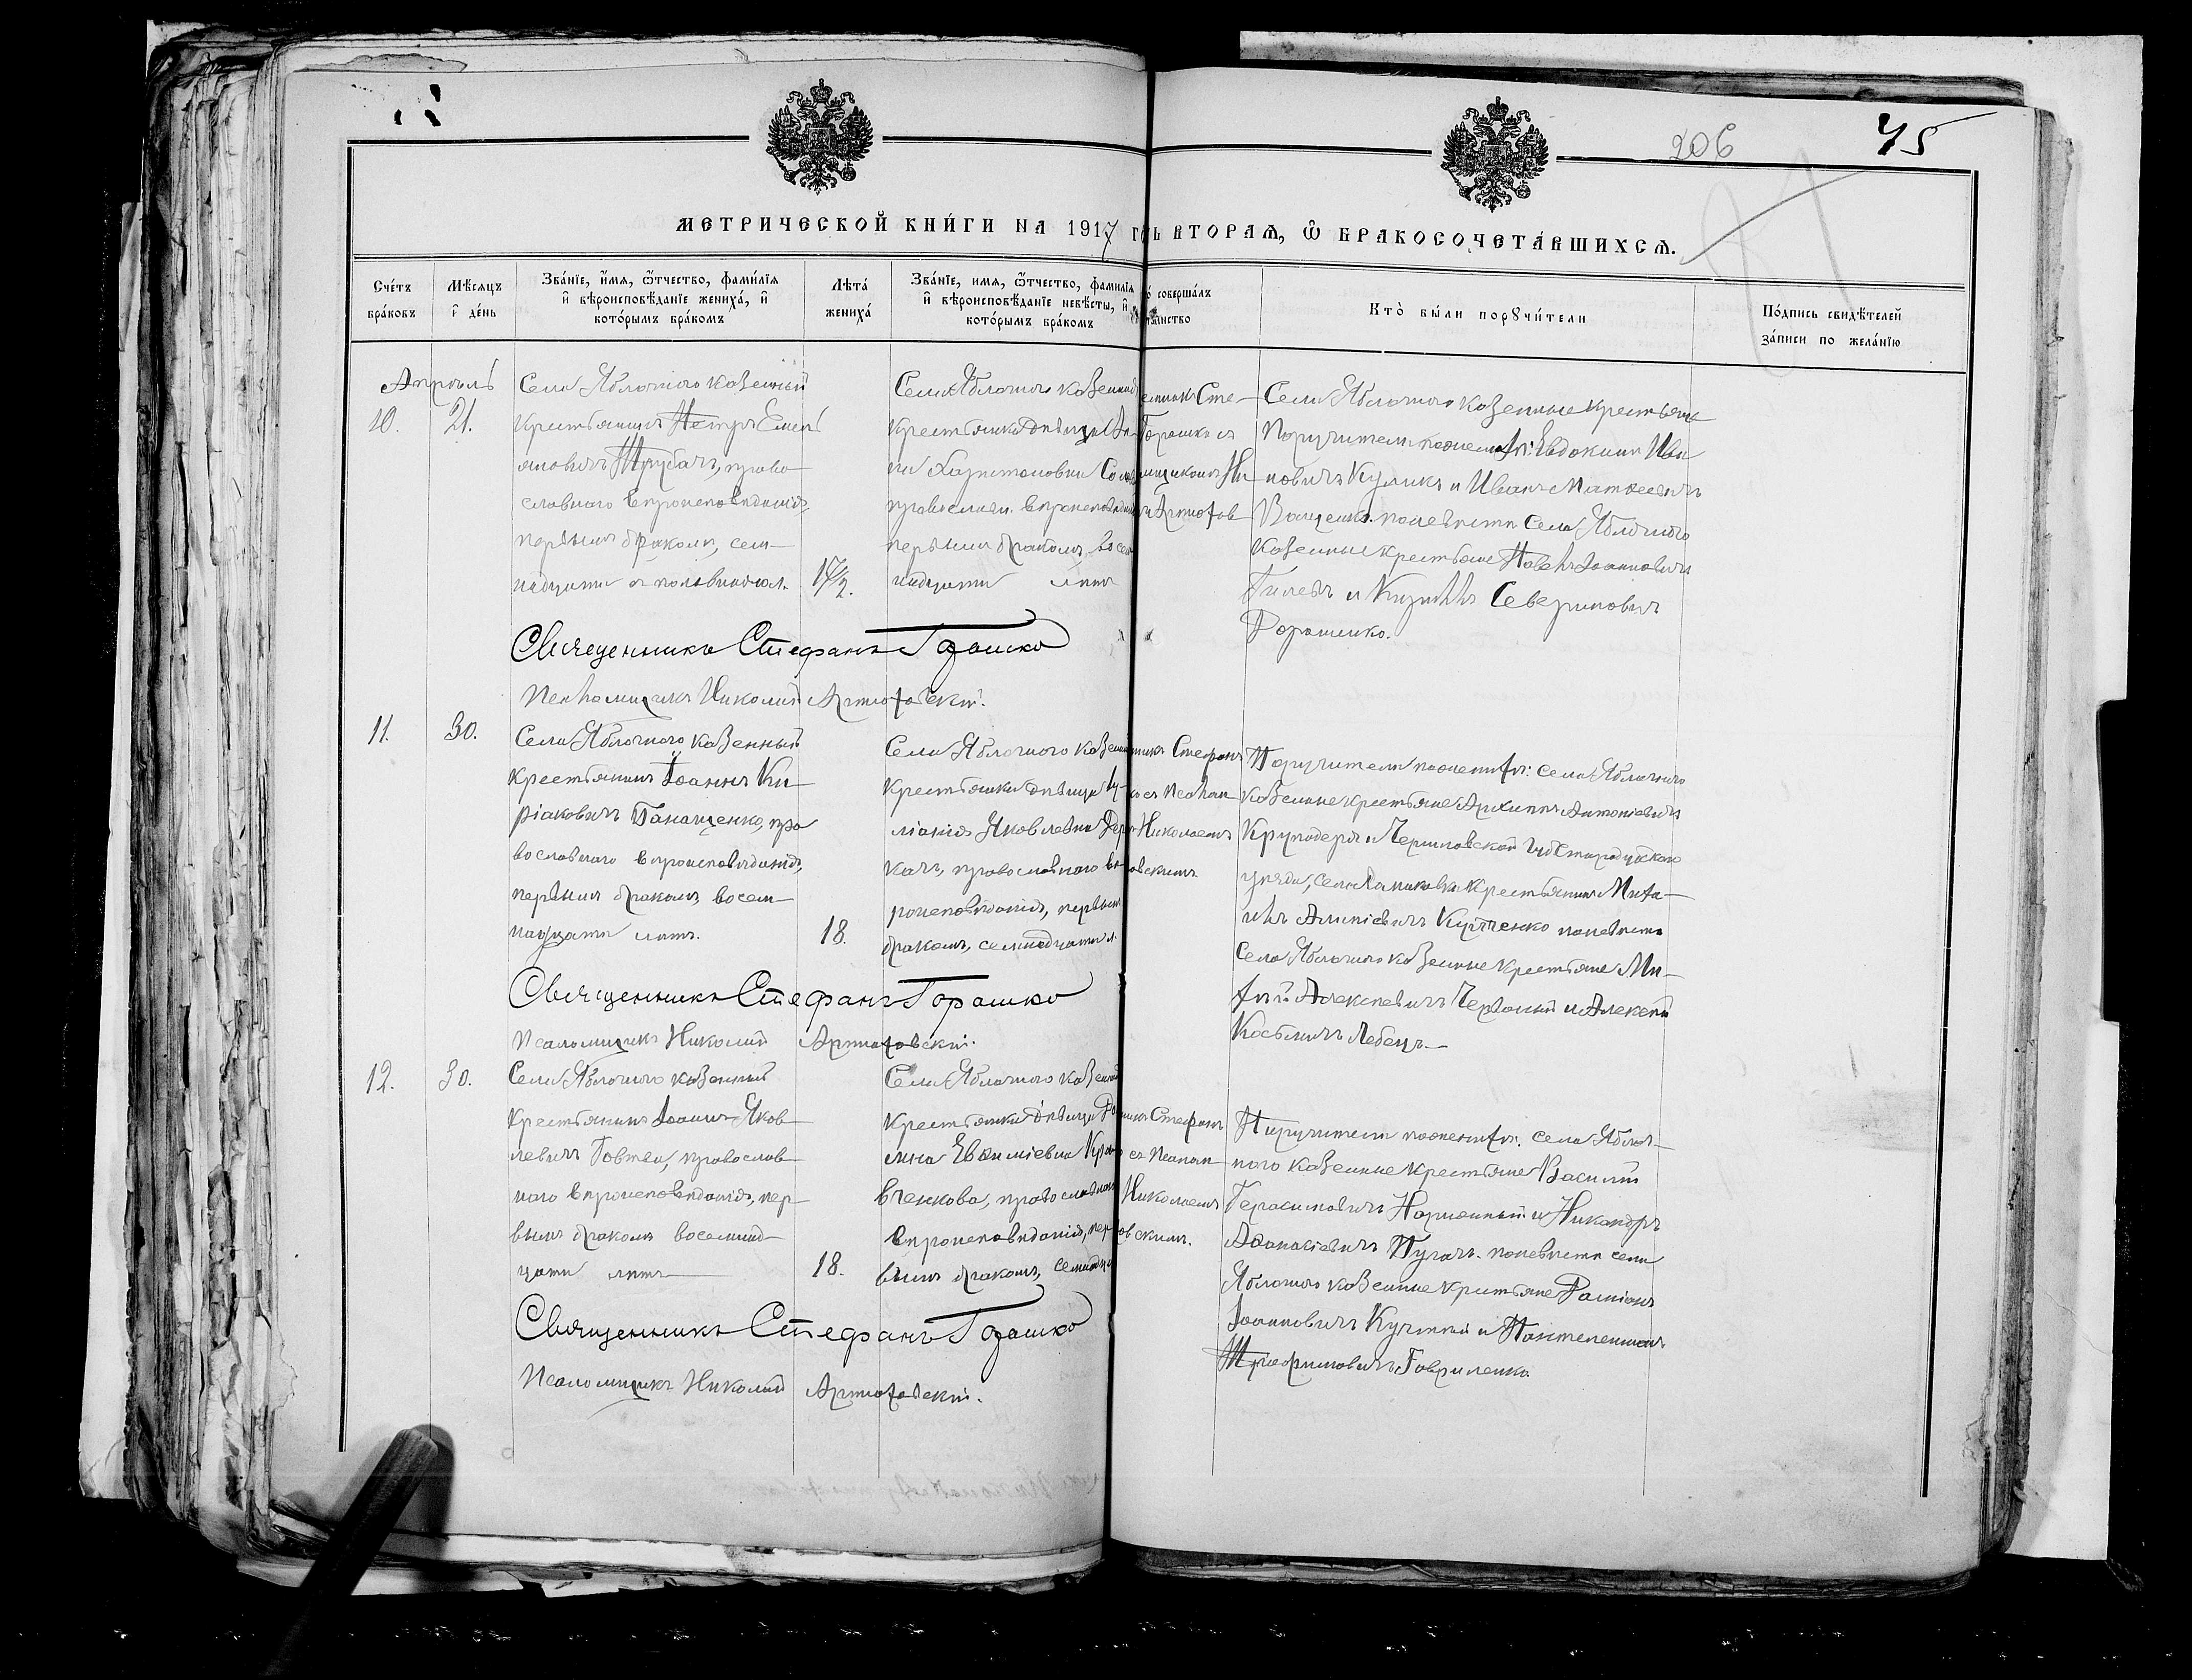 206
45
МЕТРИЧЕСКОЙ КНИ́ГИ НА 1917 ВТОРАѦ, Ѡ҆ БРАКОСОЧЕТА́ВШИХСѦ.
Сче́тъ бра́ковъ
Мѣ́сяцъ и҆ де́нь
Зва́нїе, и҆́мя, ѻ҆́тчество, фами́лїя
и҆ вѣроисповѣ́данїе жениха́, и҆
кото́рымъ бра́комъ
Лѣта́ жениха́
Зва́нїе, имя, ѻ҆́тчество, фами́лїя
и҆ вѣроисповѣ́данїе невѣ́сты, и҆
кото́рымъ бра́комъ
соверша́лъ
Кто̀ бы́ли порꙋчи́тели
По́дпись свидѣ́телей
за́писи по жела́нїю
Апрѣль
10. 21.
Села Яблочного казенный
крестьянинъ Петръ Емель
яновичъ Трубачъ, право
славнаго вѣроисповѣданія,
первымъ бракомъ, сем
надцати съ половиною л.
17½.
Села Яблочного казенной
крестьянки дѣвица
Харитоновна
православн. вѣроисповѣдан
первымъ бракомъ, восем
надцати лѣтъ
Сте
Горашко съ
Ни
Артюхов
Села Яблочного казенные крестьяне
Поручители по женихѣ: Евдокимъ Ива
новичъ Куликъ и Иванъ Матвеевичъ
Ващенко. по невѣстѣ села Яблочного
казенные крестьяне Павелъ Іоанновичъ
и Севериновичъ
Дорошенко.
Священникъ Стефанъ Горашко
Псаломщикъ Николай Артюховскій.
11. 30.
Села Яблочного казенный
крестьянинъ Іоаннъ Ки
ріаковичъ Панащенко, пра
вославнаго вѣроисповѣданія,
первымъ бракомъ, восем
надцати лѣтъ.
18.
Села Яблочного казен
крестьянки дѣвица Іу
ліанія Яковлевна Дер
качъ, православного вѣ
роисповѣданія, первым
бракомъ, семнадцати л.
Стефанъ
съ Псалом
Николаемъ
овскимъ
Поручители по женихѣ: села Яблочного
казенные крестьяне Архиппъ Антоніевичъ
Круподеря и Черниговской губ. Стародубскаго
уѣзда, села крестьянинъ Миха
илъ Алипіевичъ Курченко по невѣстѣ
села Яблочного казенные крестьяне Ми
хаилъ Алексѣевичъ Червоный и Алексѣй
Лебедь
Священникъ Стефанъ Горашко
Псаломщикъ Николай Артюховскій.
12. 30.
Села Яблочного казенный
крестьянинъ Іоаннъ Яков
левичъ Говтва, православ
наго вѣроисповѣданія, пер
вымъ бракомъ восемнад
цати лѣтъ
18.
Села Яблочного казенной
крестьянки дѣвица До
мна Евѳиміевна Кра
вченкова, православнаго
вѣроисповѣданія, пер
вымъ бракомъ, семнадца
Стефанъ
съ Псалом
Николаемъ
овскимъ.
Поручители по женихѣ: села Яблоч
ного казенные крестьяне Василій
Герасимовичъ Нарижный и Никандръ
Аѳанасіевичъ Пугачъ. по невѣстѣ села
Яблочного казенные крестьяне Даміанъ
Іоанновичъ и Пантелеимонъ
Трофимовичъ Гавриленко
Священникъ Стефанъ Горашко
Псаломщикъ Николай Артюховскій.